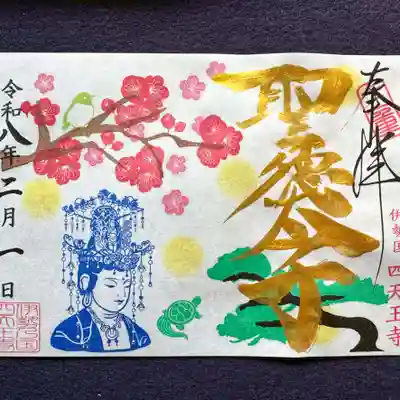 奉拝
伊勢国 四天王寺
聖徳太子
令和八年二月一日